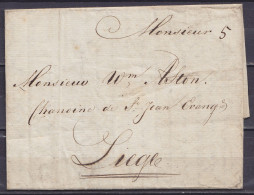 Monsieur 5
Monsieur Wm Aston
Chanoine de St. Jean Evangs
Liege